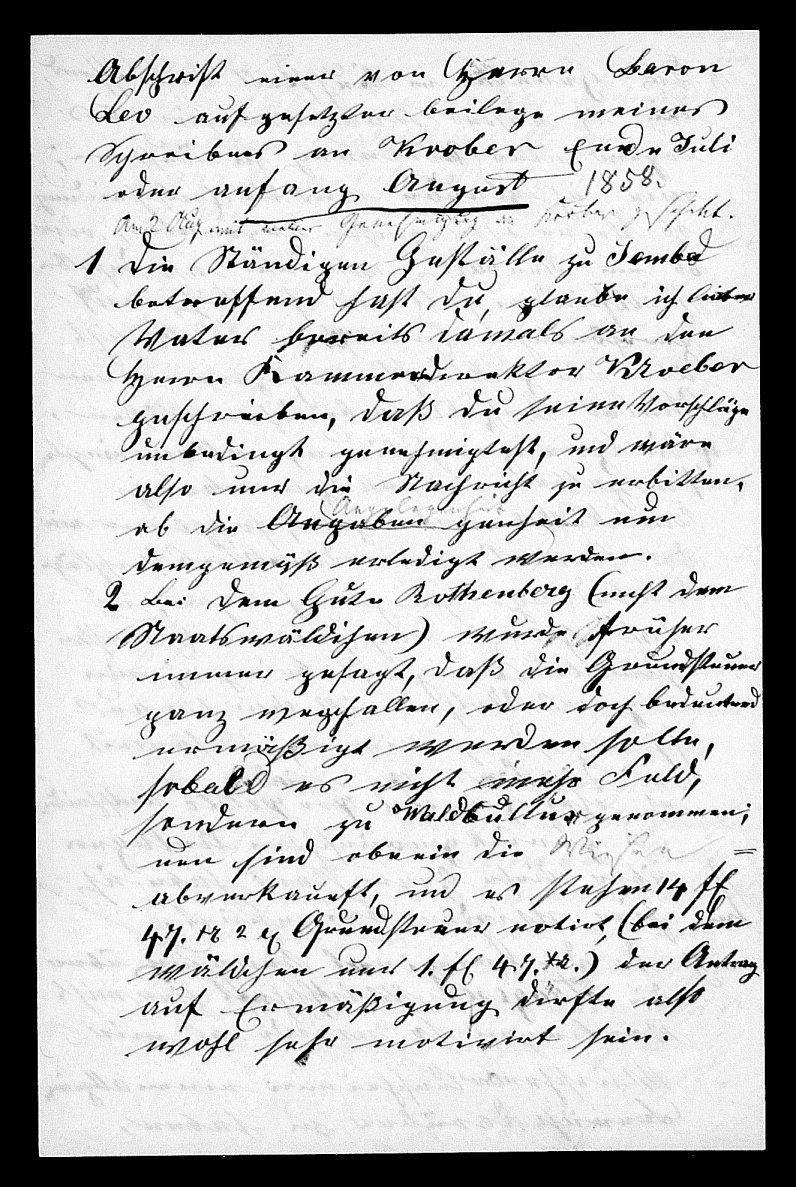 Abschrift einer von Herrn Baron
Leo aufgesetzten Beilage meines
Schreibens an Krober Ende Juli
oder anfang August 1858.
Am 2 Aug mit meiner Genehmigung an Kröber geschikt.
1 Die Ständigen Gefälle zu
betreffend hast du, glaube ich lieber
Vater bereits damals an den
Herrn Kammerdirektor Kroeber
geschrieben, daß du seine Vorschläge
unbedingt genehmigtest, und wäre
also nur die Nachricht zu erbitten,
ob die Angaben genheit nun
Angelegenheit
demgemäß erledigt worden.
2 Bei dem Gute Rothenberg (nebst dem
Staatswäldchen) wurde früher
immer gesagt, daß die Grundsteuer
ganz wegfallen, oder doch bedeutend
ermäßigt werden solle,
sobald es nicht mehr Feld,
sondern zu Waldkultur genommen;
nun sind obenein die Wiesen
abverkauft, und es stehen 14 ff
47. xr 2 Grundsteuer notirt, (bei dem
wäldchen nur 1. fl 47. xr.) der Antrag
auf Ermäßigung dürfte also
wohl sehr motivirt sein.